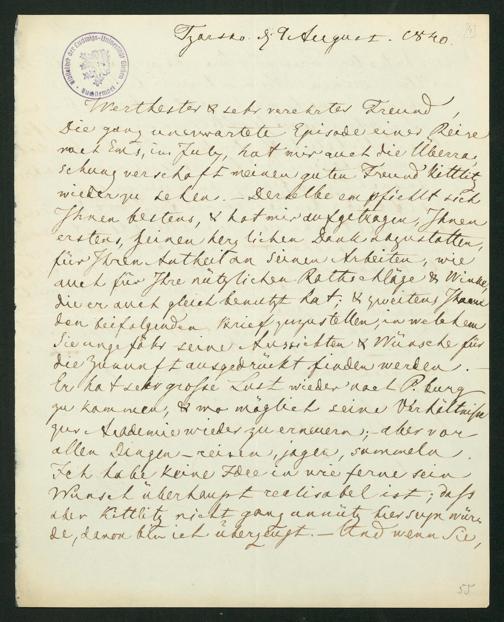 Bibliothek der Ludwigs-Universität Giessen
Tzarsko. d. 9 August. 1840.
Werthester & sehr verehrter Freund,
Die ganz unerwartete Episode einer Reise
nach Ems, im July, hat mir auch die Überra,
schung verschaft meinen guten Freund Kittlitz
wieder zu sehen. — Derselbe empfiehlt sich
Ihnen bestens, & hat mir aufgetragen, Ihnen
erstens, seinen herzlichen Dank abzustatten,
für Ihren Antheil an seinen Arbeiten, wie
auch für Ihre nützlichen Rathschläge & Winke,
die er auch gleich benutzt hat; & zweitens Ihnen
den beifolgenden Brief zuzustellen, in welchem
Sie ungefähr seine Aussichten & Wünsche für
die Zukunft ausgedrückt finden werden. —
Er hat sehr große Lust wieder nach P.burg
zu kommen, & wo möglich seine Verhältniße
zur Academie wieder zu erneuern, — aber vor
allen Dingen — reisen, jagen, sammeln.
Ich habe keine Idee in wie ferne sein
Wunsch überhaupt realisabel ist; daß
aber Kittlitz nicht ganz unnütz hier seyn wür,
de, davon bin ich überzeugt. — Und wenn Sie,
55